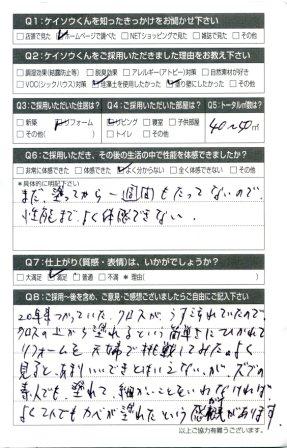 Q1：ケイソウくんを知ったきっかけをお聞かせ下さい
□店頭で見た □ホームページで調べた □NETショッピングで見た □雑誌で見た □その他
Q2：ケイソウくんをご採用いただきました理由をお教え下さい
□調湿効果(結露防止等) □脱臭効果 □アレルギー(アトピー)対策 □自然素材が好き
□VOC(シックハウス)対策 □珪藻土を使用したかった □塗り壁にしたかった □その他
Q3：ご採用いただいた住居は？ Q4：ご採用いただいた部屋は？ Q5：トータル㎡数は？
□新築 □リフォーム □リビング □寝室 □子供部屋 40〜50㎡
□その他( ) □トイレ □その他
Q6：ご採用いただき、その後の生活の中で性能を体感できましたか？
□非常に体感できた □体感できた □よく分からない □全く体感できない □その他
*具体的に明記下さい
まだ、塗ってから一週間もたってないので、
性能までよく体感できない。
Q7：仕上がり(質感・表情)は、いかがでしょうか？
□大満足 □満足 □普通 □不満 *理由( )
Q8：ご採用〜後を含め、ご意見・ご感想ございましたらご自由にご記入下さい
20年
クロスの上から塗れるという簡単さにひかれて
リフォームを夫婦で挑戦してみた。よく
見ると、あまりいいできとはいえないが、ズブの
素人でも、塗れて、細かいことをいわなければ
よくこんでもカベが塗れたという感動があります。
以上ご協力有難うございます。